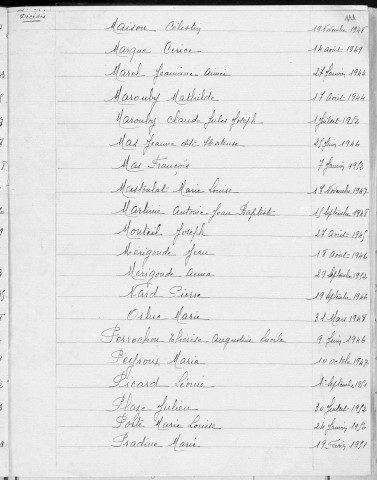 Décédés
Maison Célestin 19 Novembre 1948
Marque Cerice 14 août 1949
Marel Jeannine Aimée 27 Janvier 1944
Marouby Mathilde 17 Août 1944
Marouby Claude Jules Joseph 1 Juillet 1952
Mas Jeanne dit 25 Juin 1946
Mas François 7 Janvier 1952
Mastoulat Marie Louise 17 Novembre 1947
Martinie Antoine Jean Baptiste 15 Septembre 1948
Monteil Joseph 27 Août 1945
Merigonde Jean 18 Août 1946
Merigonde Anna 29 Septembre 1952
Nard Pierre 19 Septembre 1946
Orluc Marie 31 Mars 1948
Perrochon Thérèse Augustine Lucile 9 Juin 1946
Peyroux Maria 10 octobre 1947
Picard Léonie Septembre 1951
Plaze Julien 30 Juillet 1952
Porte Marie Louise 24 Janvier 1950
Pradine Marie 19 1951